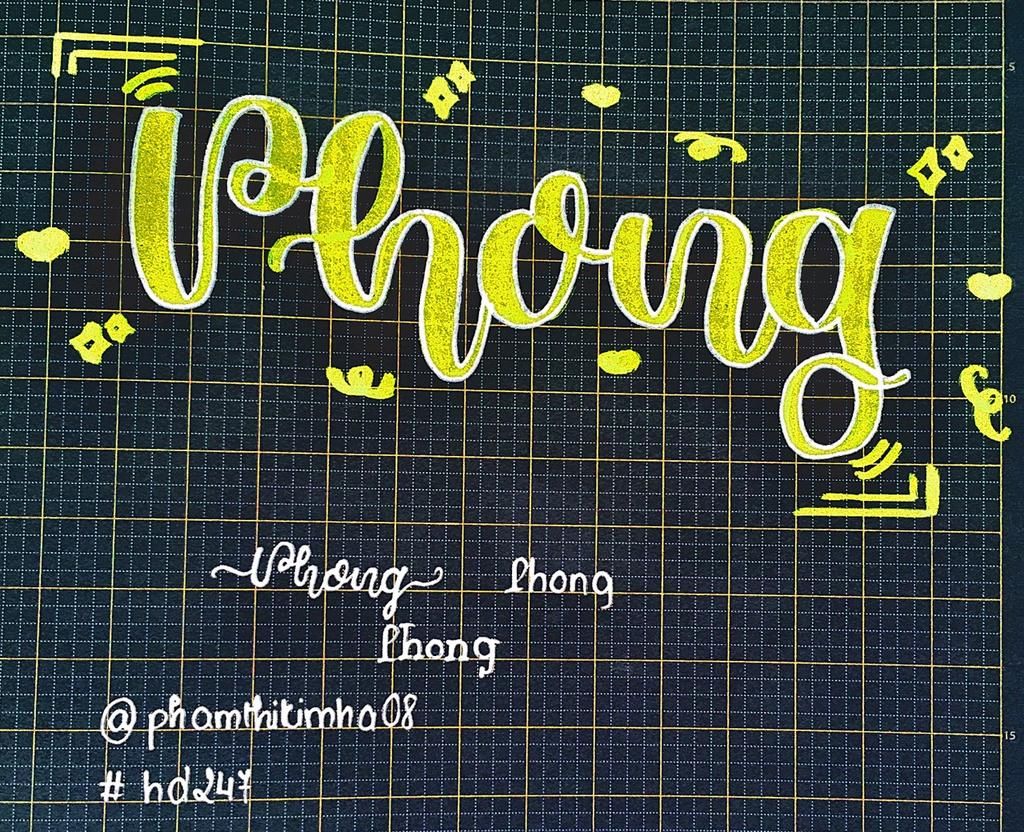 Phong
Phong Phong
Phong
@phamthikimha08
# hd247
5
10
15